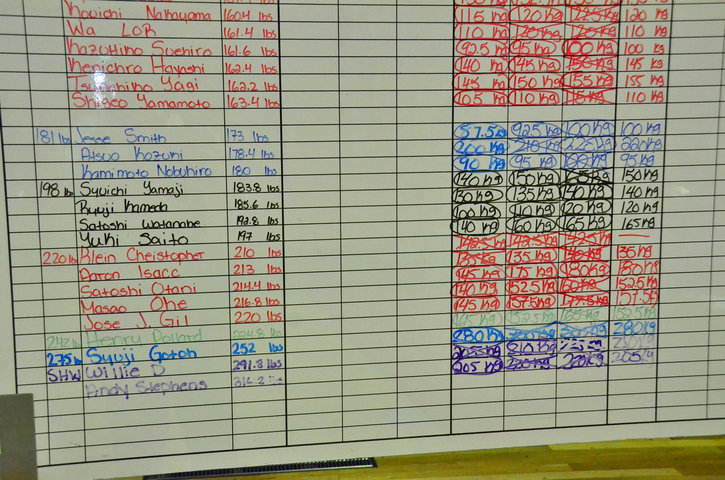 Kouichi Nakayama 160.4 lbs 115 kg 120 kg 125 kg 120 kg
Wa LOR 161.4 lbs 110 kg 120 kg 120 kg 110 kg
Kazuhiko Suehiro 161.6 lbs 92.5 kg 95 kg 100 kg 100 kg
Kenichiro Hayashi 162.4 lbs 140 kg 145 kg 150 kg 145 kg
Yagi 162.2 lbs 145 kg 150 kg 155 kg 155 kg
Shigeo Yamamoto 163.4 lbs 105 kg 110 kg 115 kg 110 kg
181 lbs Jesse Smith 173 lbs 87.5 kg 92.5 kg 100 kg 100 kg
Atsuo Kozuni 178.4 lbs 200 kg 220 kg 220 kg
Kamimoto Nobuhiro 180 lbs 90 kg 95 kg 100 kg 95 kg
198 lb Syuichi Yamaji 183.8 lbs 140 kg 150 kg 150 kg
Ryuji Kameda 185.6 lbs 130 kg 135 kg 140 kg 140 kg
Satoshi Watanabe 192.8 lbs 100 kg 110 kg 120 kg 120 kg
Yuki Saito 197 lbs 140 kg 160 kg 165 kg 165 kg
220 lb Klein Cheistopher 210 lbs 142.5 kg 142.5 kg 142.5 kg
Aaron Isacc 213 lbs 135 kg 135 kg
Satoshi Otani 214.4 lbs 145 kg 175 kg 180 kg 180 kg
Masao Ohe 216.8 lbs 140 kg 152.5 kg 160 kg 152.5 kg
Jose J. Gil 220 lbs 145 kg 157.5 kg 177.5 kg 157.5 kg
242 lb Henry 152.5 kg 165 kg 152.5 kg
275 lb Syuji Gotoh 252 lbs 280 kg 280 kg
SHW Willie D 291.8 lbs 205 kg 210 kg
Andy Stephens 205 kg 220 kg 220 kg 205 kg